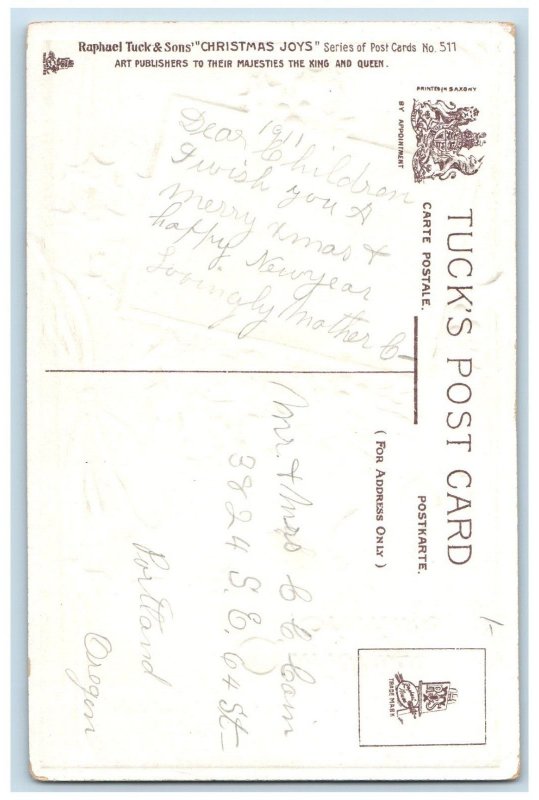 Raphael Tuck & Sons' "CHRISTMAS JOYS" Series of Post Cards No. 511
ART PUBLISHERS TO THEIR MAJESTIES THE KING AND QUEEN.
PRINTED IN SAXONY
BY APPOINTMENT
TUCK'S POST CARD
CARTE POSTALE.
POSTKARTE.
(FOR ADDRESS ONLY)
TRADE MARK
1911
Dear Children
I wish you A
merry Xmas &
happy Newyear
Lovingly Mother C-
Mr. & Mrs C C Coin
3824 S.E. 64 St-
Portland
Oregon
1-